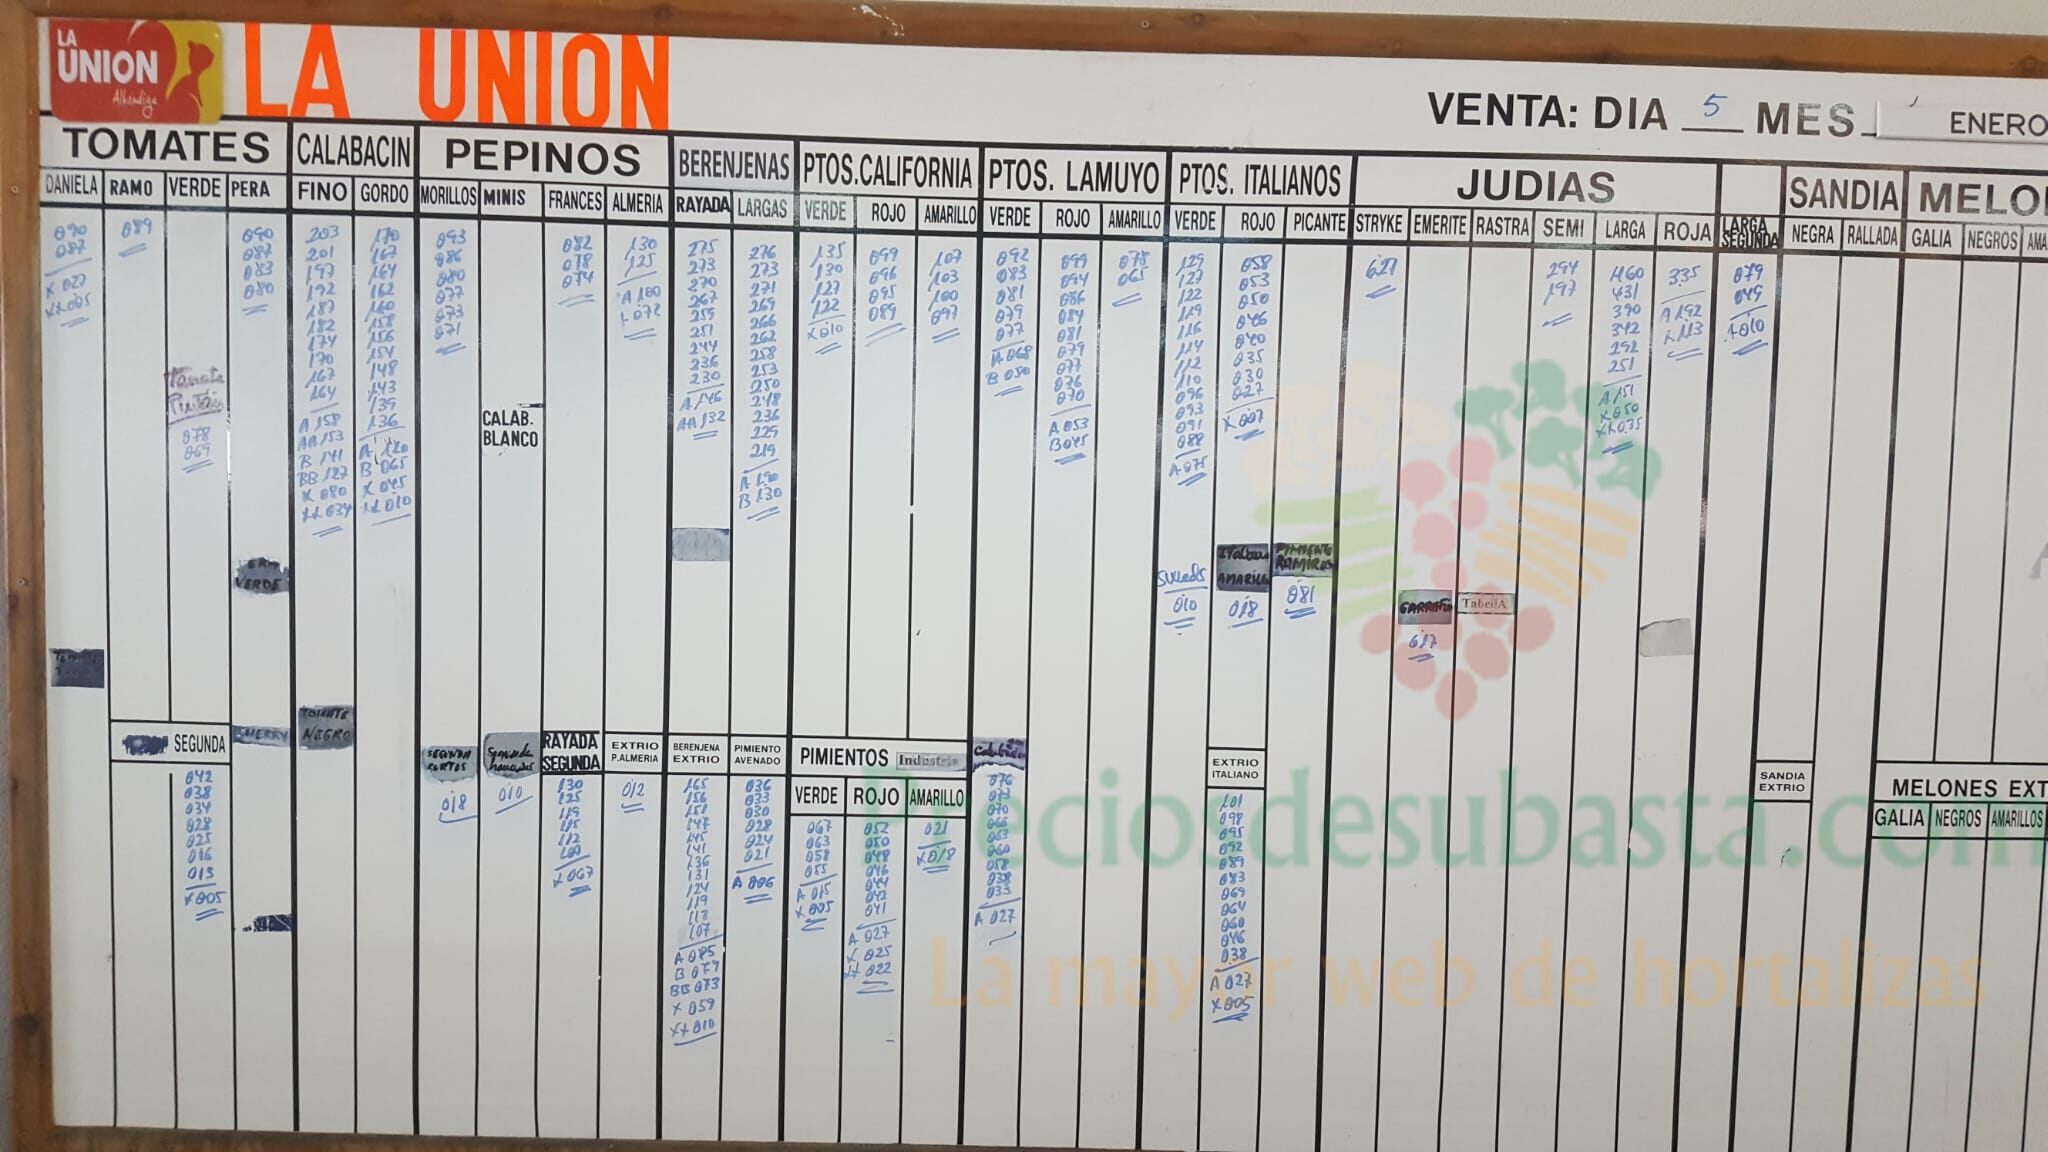 LA
UNION
Alhóndiga
LA UNION
VENTA: DIA 5 MES ENERO
TOMATES
DANIELA RAMO VERDE PERA
CALABACIN
FINO GORDO
PEPINOS
MORILLOS MINIS FRANCES ALMERIA
BERENJENAS
RAYADA LARGAS
PTOS.CALIFORNIA
VERDE ROJO AMARILLO
PTOS. LAMUYO
VERDE ROJO AMARILLO
PTOS. ITALIANOS
VERDE ROJO PICANTE
JUDIAS
STRYKE EMERITE RASTRA SEMI LARGA ROJA
LARGA
SEGUNDA
SANDIA
NEGRA RALLADA
MELO
GALIA NEGROS AMA
090
087
X 027
XX 005
089
Tomate
Pintón
078
069
090
087
083
080
203
201
197
192
187
182
174
170
167
164
A 158
AA 153
B 141
BB 127
X 080
XX 034
170
167
164
162
160
158
156
154
148
143
139
136
A 120
B 065
X 045
XX 010
093
086
080
077
073
071
CALAB.
BLANCO
082
078
074
130
125
A 100
X 072
275
273
270
267
259
251
244
236
230
A 146
AA 132
276
273
271
269
266
262
258
253
250
248
236
229
219
A 190
B 130
135
130
127
122
X 010
099
096
095
089
107
103
100
097
092
083
081
079
077
A 068
B 050
099
094
086
084
081
079
077
076
070
A 053
B 045
078
065
129
127
122
119
116
114
112
110
096
093
091
088
A 075
058
053
050
046
040
035
030
027
X 007
627
294
197
460
431
390
342
292
251
A 151
X 050
XX 035
335
A 192
X 113
079
049
A 010
VERDE
010
Italiano
AMARILLO
018
PIMIENTO
RAMIRO
081
GARRAFAL
617
TabellA
TOMATE
NEGRO
SEGUNDA
042
038
034
028
025
016
013
X 005
CHERRY
SEGUNDA
CORTOS
018
Segunda
010
RAYADA
SEGUNDA
130
125
119
115
112
100
X 067
EXTRIO
P.ALMERIA
012
BERENJENA
EXTRIO
165
156
151
147
145
141
136
131
124
119
113
107
A 085
B 079
BB 073
X 059
XX 010
PIMIENTO
AVENADO
036
033
030
028
024
021
A 006
PIMIENTOS Industria
VERDE ROJO AMARILLO
067
063
058
055
A 015
X 005
052
050
048
046
044
042
041
A 027
X 025
XX 022
021
X 018
076
073
070
066
063
060
058
038
033
A 027
EXTRIO
ITALIANO
101
098
095
092
089
083
069
064
060
046
038
A 027
X 005
SANDIA
EXTRIO
MELONES EXT
GALIA NEGROS AMARILLOS
Preciosdesubasta.com
La mayor web de hortalizas